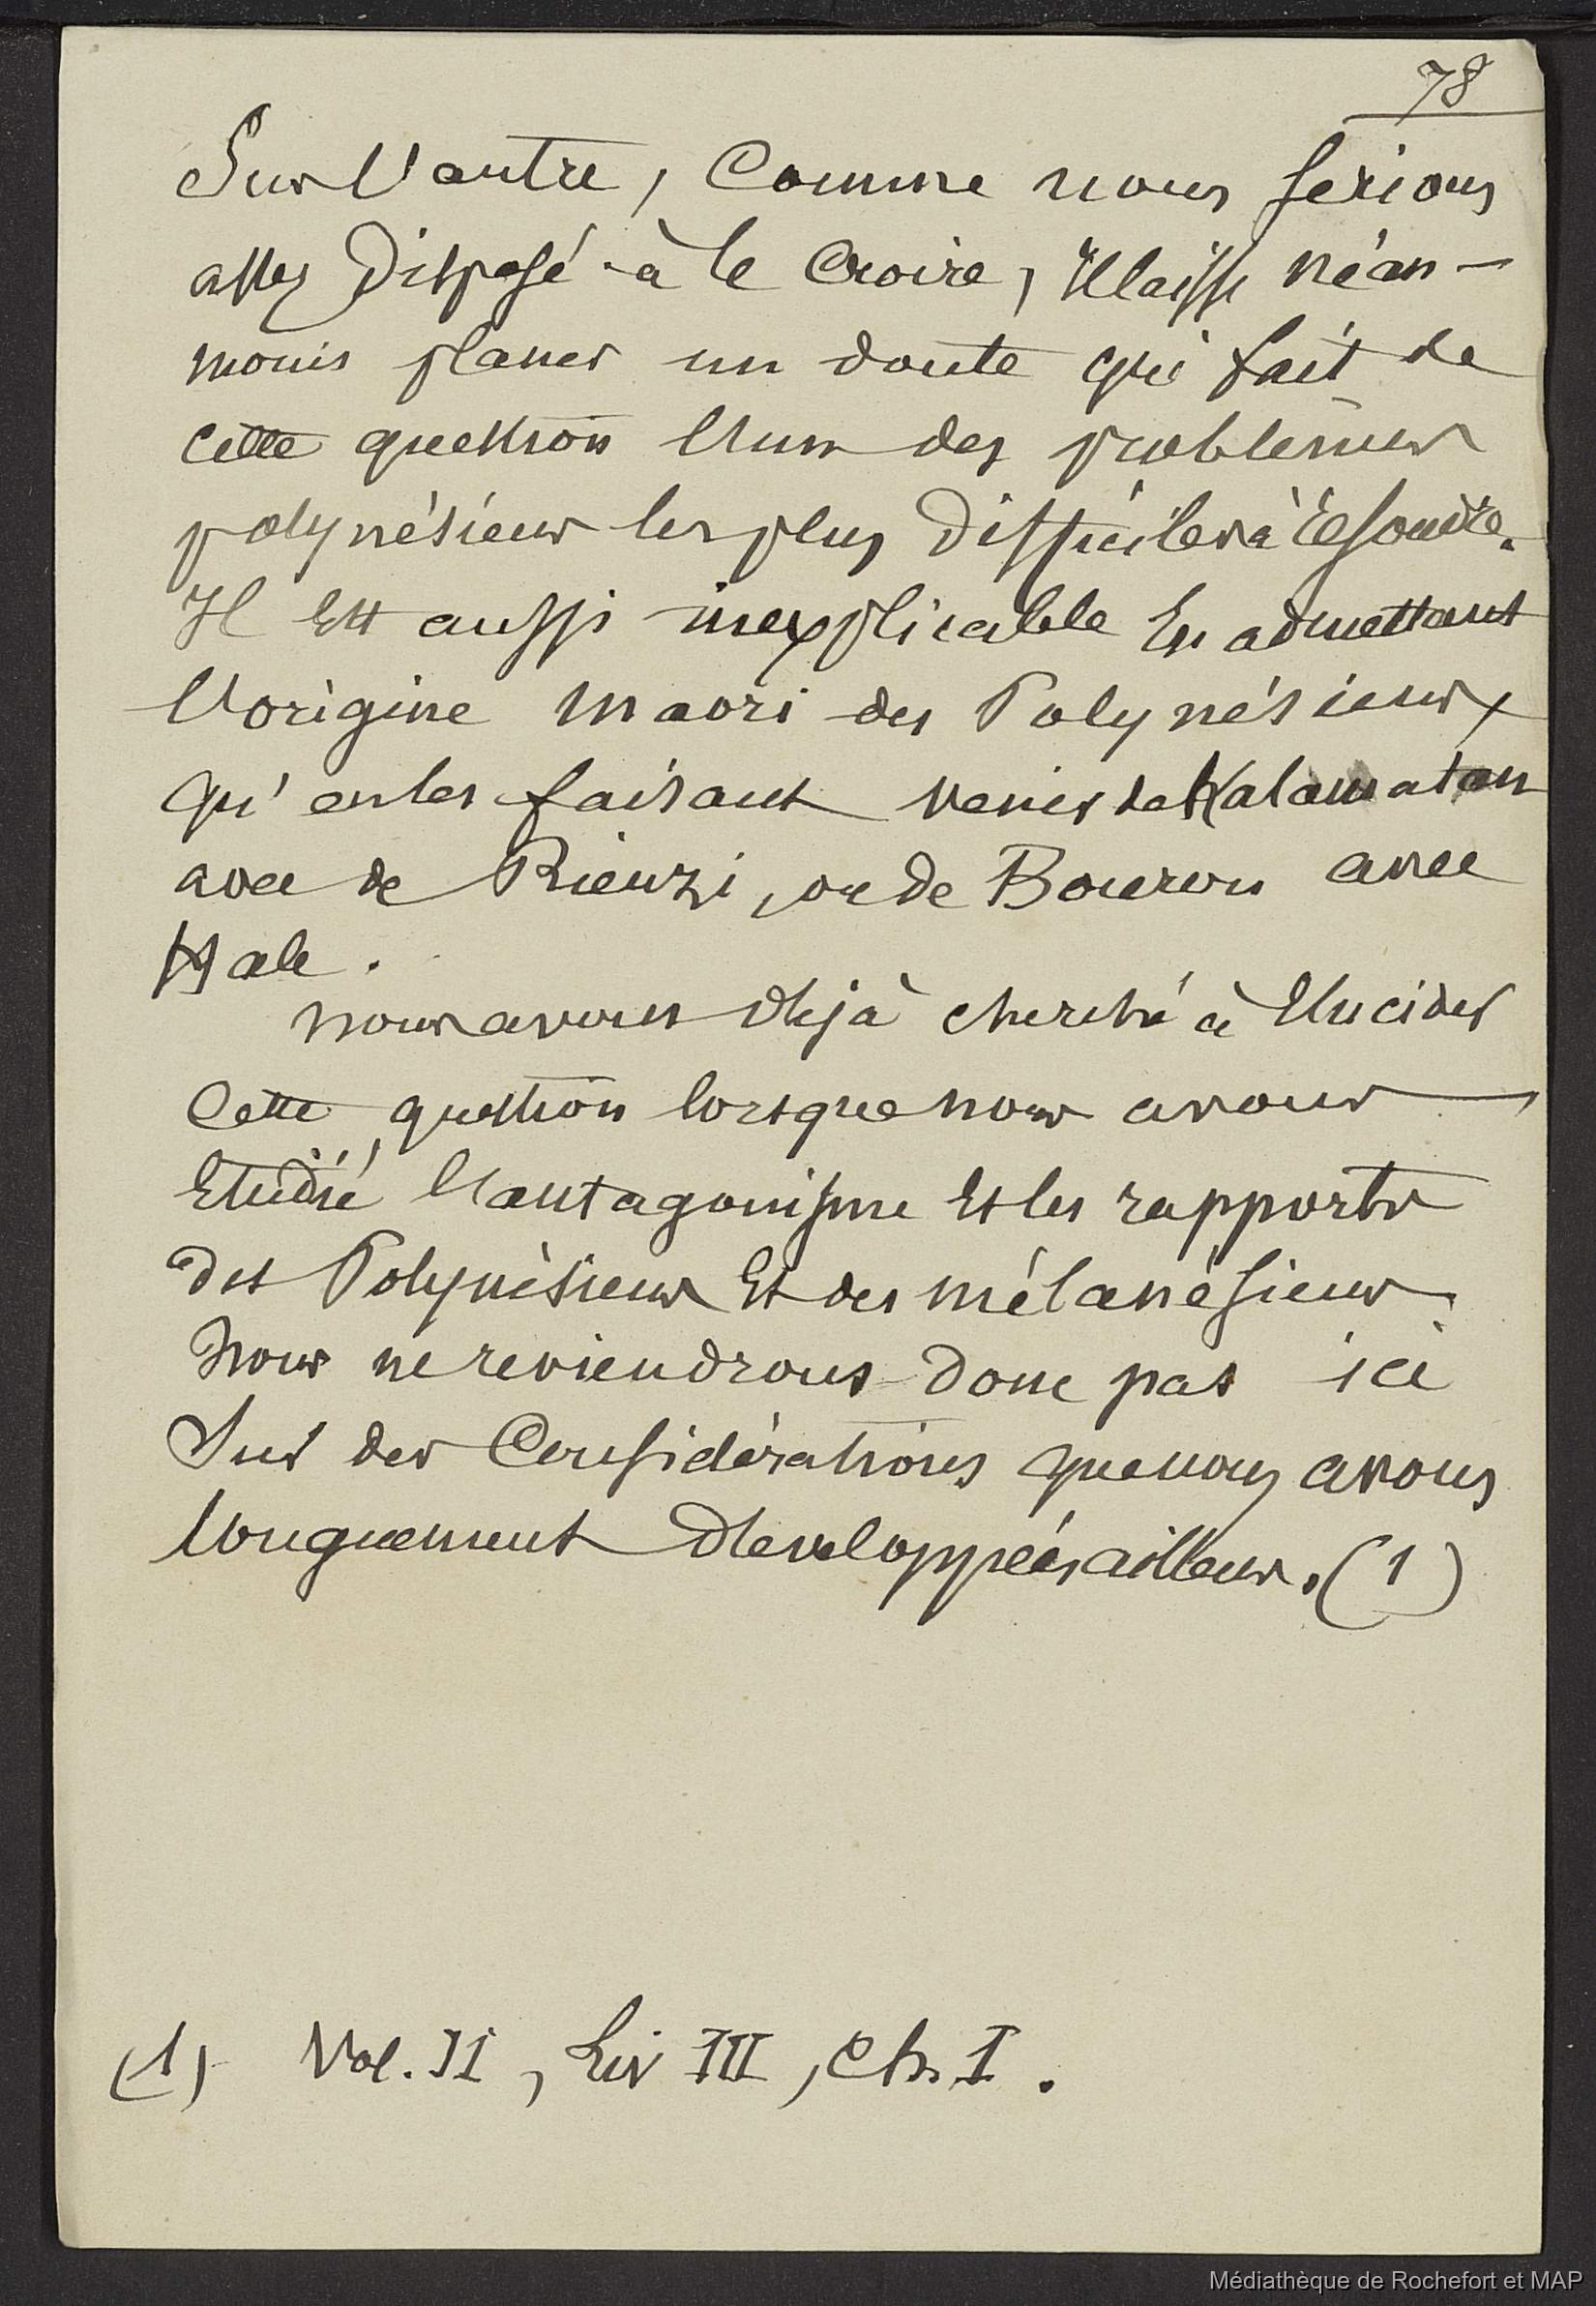 78
Sur l'autre, comme nous serions
assez disposé à le croire, il laisse néan-
moins planer un doute qui fait de
cette question l'un des problèmes
polynésiens les plus difficiles à résoudre.
Il est aussi inexplicable en admettant
l'origine maori des Polynésiens,
qu'en les faisant venir de Kalamatan
avec de Rienzi, ou de Bouron avec
Hale.
Nous avons déjà cherché à élucider
cette question lorsque nous avons
étudié l'antagonisme et les rapports
des Polynésiens et des mélanésiens.
Nous ne reviendrons donc pas ici
sur des considérations que nous avons
longuement développées ailleurs. (1)
(1) Vol. II, Liv III, Ch. I.
Médiathèque de Rochefort et MAP